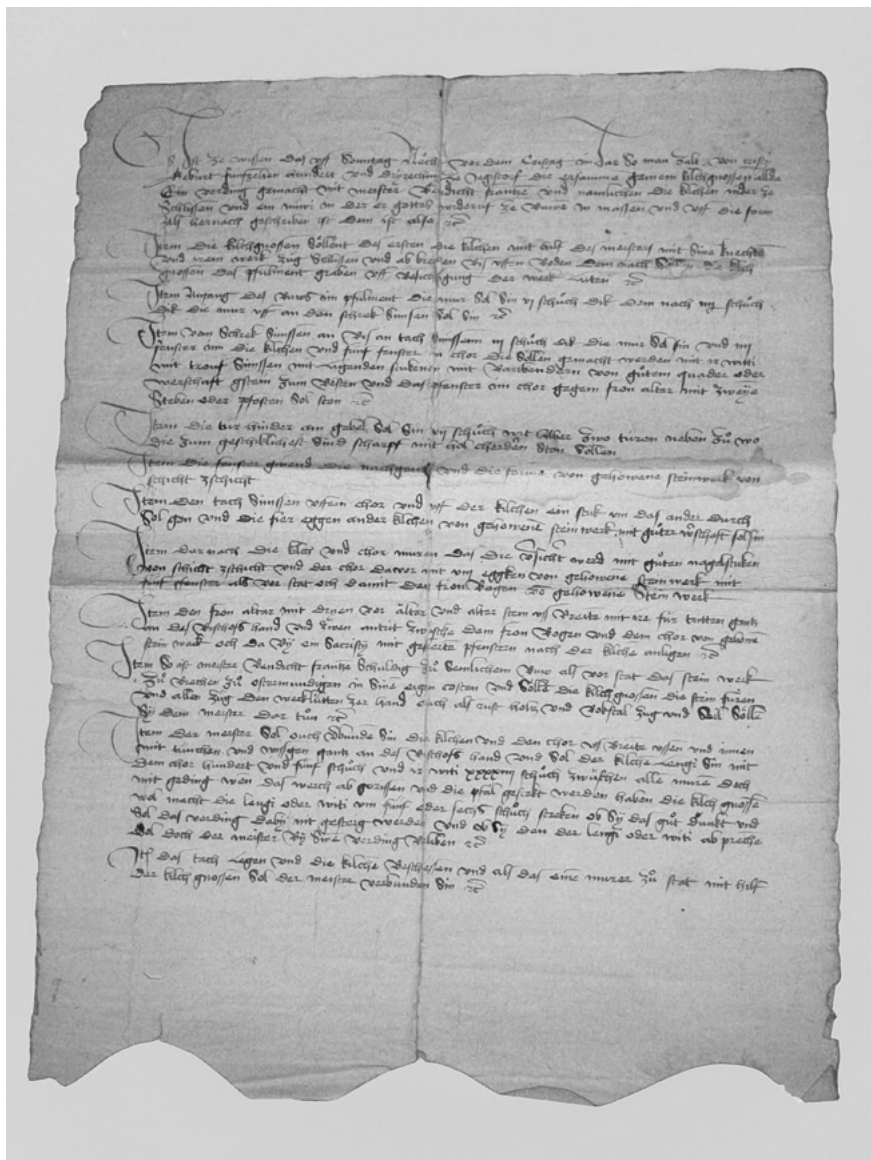 Es ist ze wissen das uff Sonntag Näch vor dem in Jar so man zalt von cristi
geburt funfzehen hundert und ze Jegistorf die ersamme gemein kilchgnossen alda
Ein verding gemacht mit meister Bendicht frantze und namlichen die kilchen nider ze
Schlissen und ein nüwi in der er gottes widerumb ze buwen in massen und uff die form
Als hernach geschriben ist dem ist also etc
Item die kilchgnossen söllent des ersten die kilchen mit hilf des meisters mit sine knechte
und irem werk züg Schlissen und ab brechen bis uffen boden dem nach söllen die kilch
gnossen das pfulment graben uff der werk luten etc
Item Anfang des buws im pfulment die mur sol sin vj schüch dik dem nach iiij schüch
dik die mur uff an den schrek simsen sol sin etc
Item vom schrek simssen an bis an tach simssen iij schüch dik die mur sol sin und iiij
fenster inn die kilchen und fünf fenster im chor die söllen gemacht werden mit ir witti
mit trouf simssen mit ligenden mit von gütem quader oder
werschaft gstein zum besten und das pfenster im chor gegem fron altar mit zweye
steben oder pfosten sol ston etc
Item die tür hinder am gebel sol sin vij schüch wit Aber zwo türen neben zü wo
die zum geschiklichest sind scharpf mit hol ston söllen
Item die fenster gwend die nachgend und die forme von gehowene steinwerk von
schicht zschicht
Item den tach simssen uffem chor und uff der kilchen ein stuk um das ander durch
sol gan und die fier eggen ander kilchen von gehowene steinwerk mit güter wschaft sol sin
Item darnach die kilch und chor muren das die werd mit güten nagelstuken
von schicht zschicht und der chor davor mit viij eggken von gehowene steinwerk mit
fünf pfenster als vor stat och damit den fron bogen von gehowene Steinwerk
Item den fron altar mit drien vor älter und alter stein uff breite mit ire für tritten gantz
an des bischofs hand und zwen antrit zwüsche dem fron bogen und dem chor von gehowe
stein werk och da by ein Sacristy mit pfenstern nach der kilche anligen etc
Item So ist meister Bendicht frantze schuldig zü semlichem buw als vor stat das stein werk
zü brechen zü ostermundigen in sine eigen costen und sölle die kilchgnossen die stein füren
und allen züg den werklütten zer hand ouch als rust holtz und bokstal züg und seil sölle
sy dem meister dar tün etc
Item der meister sol ouch verbunde sin die kilchen und den chor uff breite ussen und innen
mit tünchen und wissgen gantz an des bischofs hand und sol der kilche lengi sin mit
dem chor hundert und fünf schüch und ir witi xxxxiiij schüch zwüschen alle muren doch
mit geding wen das werch ab gerissen und die pfäl gestekt werden haben die kilch gnosse
wol macht die lengi oder witi um fünf oder sechs schüch streken ob sy das güt dunkt und
sol das verding daby nit gesteigt werden und ob sy den der lengi oder witi ab preche
sol doch der meister by sine verding beliben etc
Item das tach legen und die kilche beschiessen und als das eine murer zü stat mit hilf
der kilchgnossen sol der meister verbunden sin etc